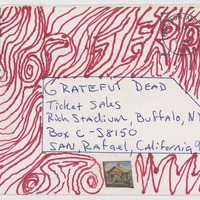 GRATEFUL DEAD
Ticket Sales
Rich Stadium, Buffalo, NY
Box C-S8150
SAN, Rafael, California 9